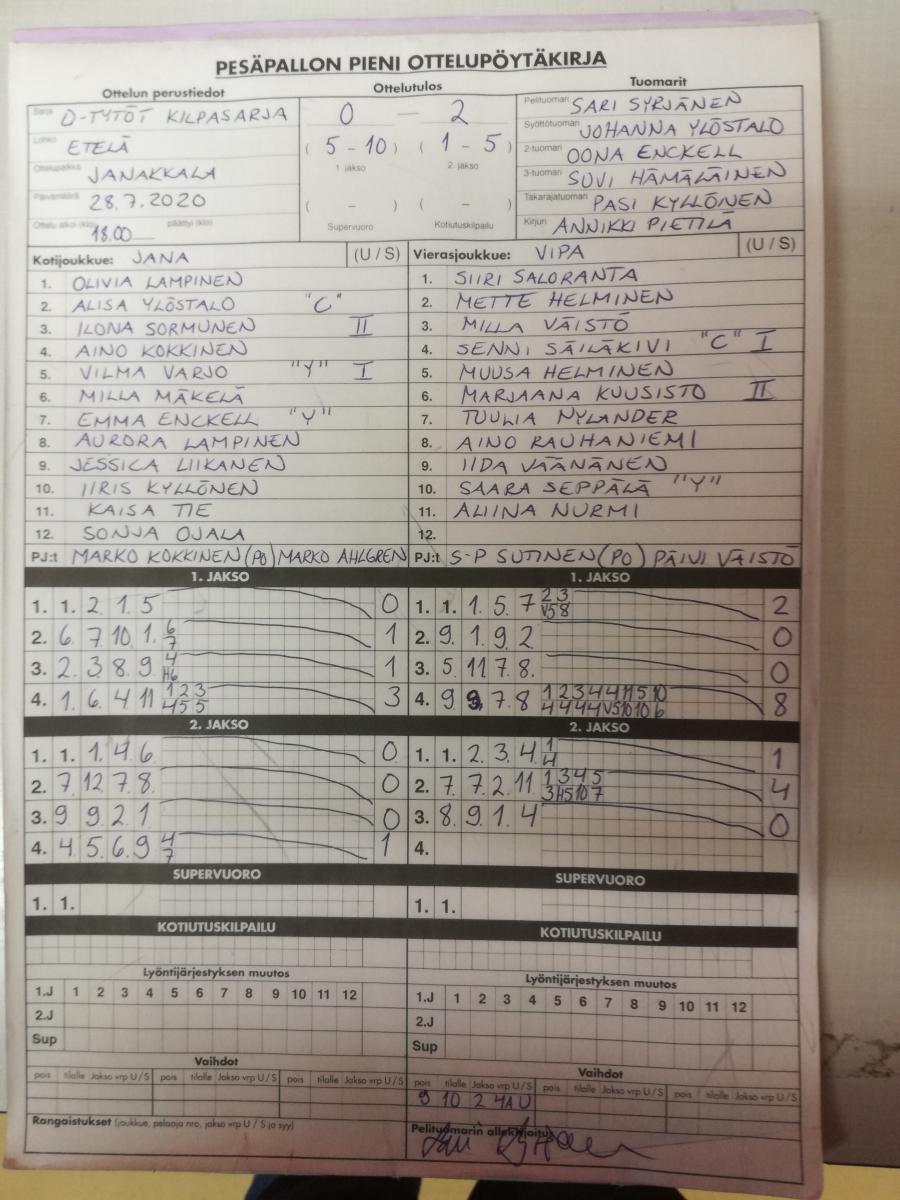 PESÄPALLON PIENI OTTELUPÖYTÄKIRJA
Ottelun perustiedot Ottelutulos Tuomarit
Sarja D-TYTÖT KILPASARJA 0 — 2 Pelituomari SARI SYRJÄNEN
Lohko ETELÄ ( 5 - 10 ) ( 1 - 5 ) Syöttötuomari JOHANNA YLÖSTALO
1. jakso 2. jakso 2-tuomari OONA ENCKELL
Ottelupaikka JANAKKALA 3-tuomari SUVI HÄMÄLÄINEN
Päivämäärä 28.7.2020 ( - ) ( - ) Takarajatuomari PASI KYLLÖNEN
Ottelu alkoi (klo) 18.00 päättyi (klo) Supervuoro Kotiutuskilpailu Kirjuri ANNIKKI PIETILÄ
Kotijoukkue: JANA (U / S) Vierasjoukkue: VIPA (U / S)
1. OLIVIA LAMPINEN 1. SIIRI SALORANTA
2. ALISA YLÖSTALO "C" 2. METTE HELMINEN
3. ILONA SORMUNEN II 3. MILLA VÄISTÖ
4. AINO KOKKINEN 4. SENNI SÄILÄKIVI "C" I
5. VILMA VARJO "Y" I 5. MUUSA HELMINEN
6. MILLA MÄKELÄ 6. MARJAANA KUUSISTO II
7. EMMA ENCKELL "Y" 7. TUULIA NYLANDER
8. AURORA LAMPINEN 8. AINO RAUHANIEMI
9. JESSICA LIIKANEN 9. IIDA VÄÄNÄNEN
10. IIRIS KYLLÖNEN 10. SAARA SEPPÄLÄ "Y"
11. KAISA TIE 11. ALIINA NURMI
12. SONJA OJALA 12.
PJ:t MARKO KOKKINEN (PO) MARKO AHLGREN PJ:t S-P SUTINEN (PO) PÄIVI VÄISTÖ
1. JAKSO 1. JAKSO
1. 1. 2. 1. 5 0 1. 1. 1. 5. 7 2 3 2
V5 8
2. 6. 7. 10. 1. 6 1 2. 9. 1. 9. 2 0
7
3. 2. 3. 8. 9 4 1 3. 5. 11. 7. 8. 0
H6
4. 1. 6. 4. 11 1 2 3 3 4. 9. 9. 7. 8 1 2 3 4 4 4 H5 5 10 8
4 5 5 4 4 4 4 V5 10 10 6
2. JAKSO 2. JAKSO
1. 1. 1. 4. 6 0 1. 1. 2. 3. 4. 1 1
4
2. 7. 12. 7. 8. 0 2. 7. 7. 2. 11. 1 3 4 5 4
3 H5 10 7
3. 9. 9. 2. 1 0 3. 8. 9. 1. 4 0
4. 4. 5. 6. 9 4 1 4.
7
SUPERVUORO SUPERVUORO
1. 1. 1. 1.
KOTIUTUSKILPAILU KOTIUTUSKILPAILU
Lyöntijärjestyksen muutos Lyöntijärjestyksen muutos
1.J 1 2 3 4 5 6 7 8 9 10 11 12 1.J 1 2 3 4 5 6 7 8 9 10 11 12
2.J 2.J
Sup Sup
Vaihdot Vaihdot
pois tilalle Jakso vrp U / S pois tilalle Jakso vrp U / S pois tilalle Jakso vrp U / S pois tilalle Jakso vrp U / S pois tilalle Jakso vrp U / S pois tilalle Jakso vrp U / S
9 10 2 4A U
Rangaistukset (joukkue, pelaaja nro, jakso vrp U / S ja syy) Pelituomarin allekirjoitus